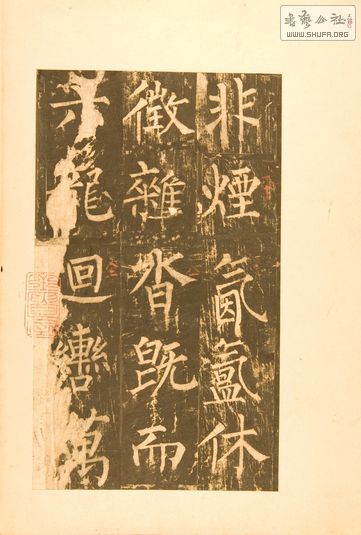 非煙氤氳休
徵雜沓既而
六龍迴轡萬
書藝公社
WWW.SHUFA.ORG